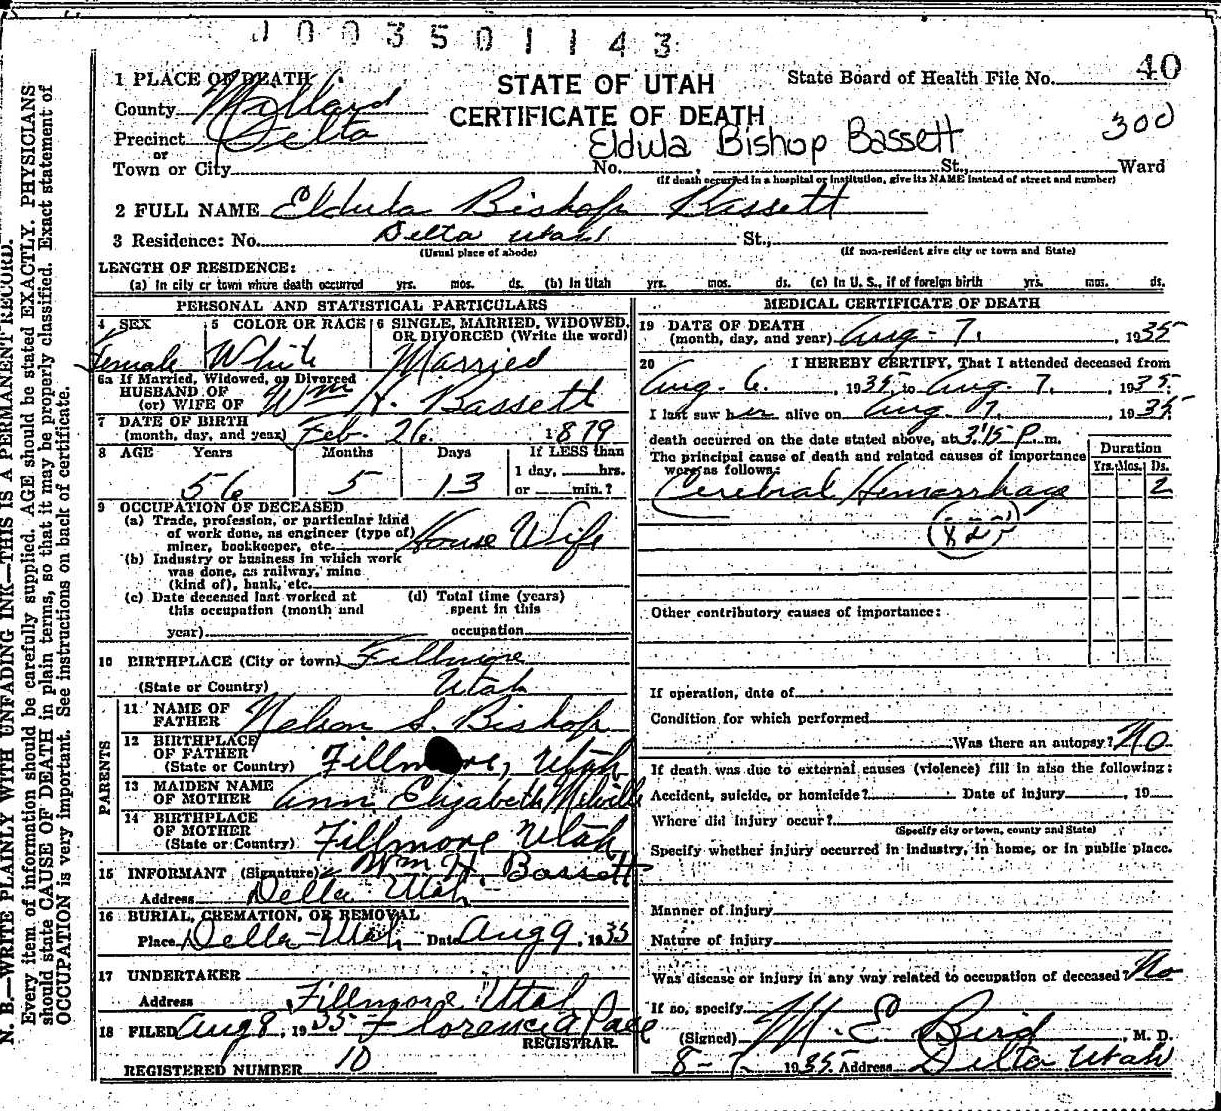 1003501143
1 PLACE OF DEATH
STATE OF UTAH
State Board of Health File No. 40
County Millard
CERTIFICATE OF DEATH
Precinct Delta
Eldula Bishop Bassett
300
or
Town or City No. St., Ward
(If death occurred in a hospital or institution, give its NAME instead of street and number)
2 FULL NAME Eldula Bishop Bassett
3 Residence: No. Delta Utah St.,
(Usual place of abode) (If non-resident give city or town and State)
LENGTH OF RESIDENCE:
(a) In city or town where death occurred yrs. mos. ds. (b) In Utah yrs. mos. ds. (c) In U. S., if of foreign birth yrs. mos. ds.
PERSONAL AND STATISTICAL PARTICULARS
4 SEX
Female
5 COLOR OR RACE
White
6 SINGLE, MARRIED, WIDOWED,
OR DIVORCED (Write the word)
Married
6a If Married, Widowed, or Divorced
HUSBAND OF
(or) WIFE OF Wm H. Bassett
7 DATE OF BIRTH
(month, day, and year) Feb- 26 1879
8 AGE Years Months Days If LESS than
1 day, hrs.
or min.?
56 5 13
9 OCCUPATION OF DECEASED
(a) Trade, profession, or particular kind
of work done, as engineer (type of)
miner, bookkeeper, etc. House Wife
(b) Industry or business in which work
was done, as railway, mine
(kind of), bank, etc.
(c) Date deceased last worked at
this occupation (month and
year)
(d) Total time (years)
spent in this
occupation
10 BIRTHPLACE (City or town) Fillmore
(State or Country) Utah
PARENTS
11 NAME OF
FATHER Nelson S. Bishop
12 BIRTHPLACE
OF FATHER
(State or Country) Fillmore, Utah
13 MAIDEN NAME
OF MOTHER Ann Elizabeth Melville
14 BIRTHPLACE
OF MOTHER
(State or Country) Fillmore Utah
15 INFORMANT (Signature) Wm H. Bassett
Address Delta Utah
16 BURIAL, CREMATION, OR REMOVAL
Place Delta Utah Date Aug 9, 1935
17 UNDERTAKER
Address Fillmore Utah
18 FILED Aug 8, 1935 Florence A Pace
REGISTRAR.
REGISTERED NUMBER 10
MEDICAL CERTIFICATE OF DEATH
19 DATE OF DEATH
(month, day, and year) Aug- 7. 1935
20 I HEREBY CERTIFY, That I attended deceased from
Aug. 6. 1935 to Aug. 7. 1935.
I last saw her alive on Aug. 7, 1935.
death occurred on the date stated above, at 3:15 P. m.
The principal cause of death and related causes of importance
were as follows:
Duration
Yrs. Mos. Ds.
Cerebral Hemorrhage 2
(82)
Other contributory causes of importance:
If operation, date of
Condition for which performed
Was there an autopsy? No
If death was due to external causes (violence) fill in also the following:
Accident, suicide, or homicide? Date of injury , 19
Where did injury occur?
(Specify city or town, county and State)
Specify whether injury occurred in industry, in home, or in public place.
Manner of injury
Nature of injury
Was disease or injury in any way related to occupation of deceased? No
If so, specify
(Signed) M. E. Bird , M. D.
8-7. 1935. Address Delta Utah
N. B.—WRITE PLAINLY WITH UNFADING INK—THIS IS A PERMANENT RECORD.
Every item of information should be carefully supplied. AGE should be stated EXACTLY. PHYSICIANS
should state CAUSE OF DEATH in plain terms, so that it may be properly classified. Exact statement of
OCCUPATION is very important. See instructions on back of certificate.